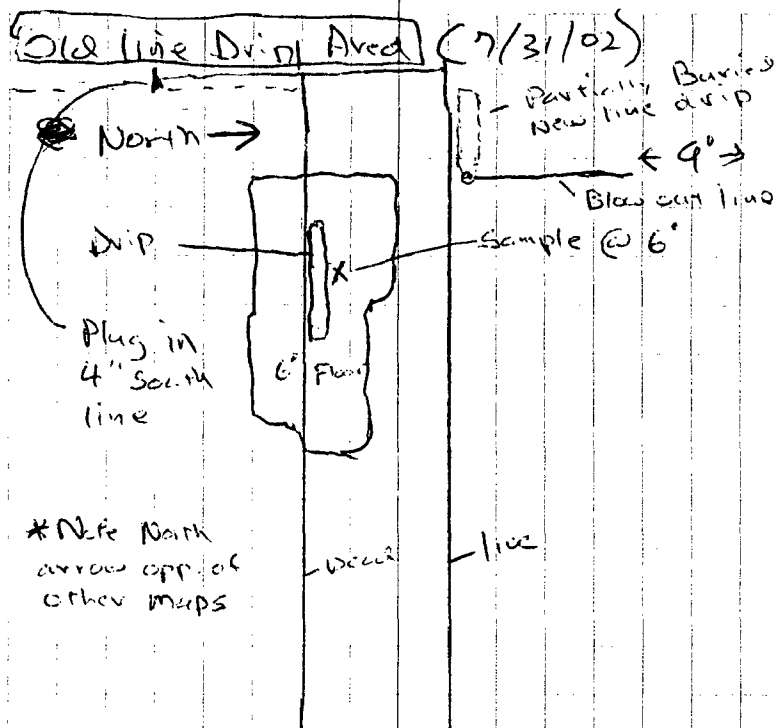 Old line Drip Area (7/31/02)
Partially Buried
New line drip
North →
← 9' →
Blow out line
Drip
Sample @ 6'
X
Plug in
4" South
line
6' Floor
*Note North
arrow opp. of
other maps
Dead
live